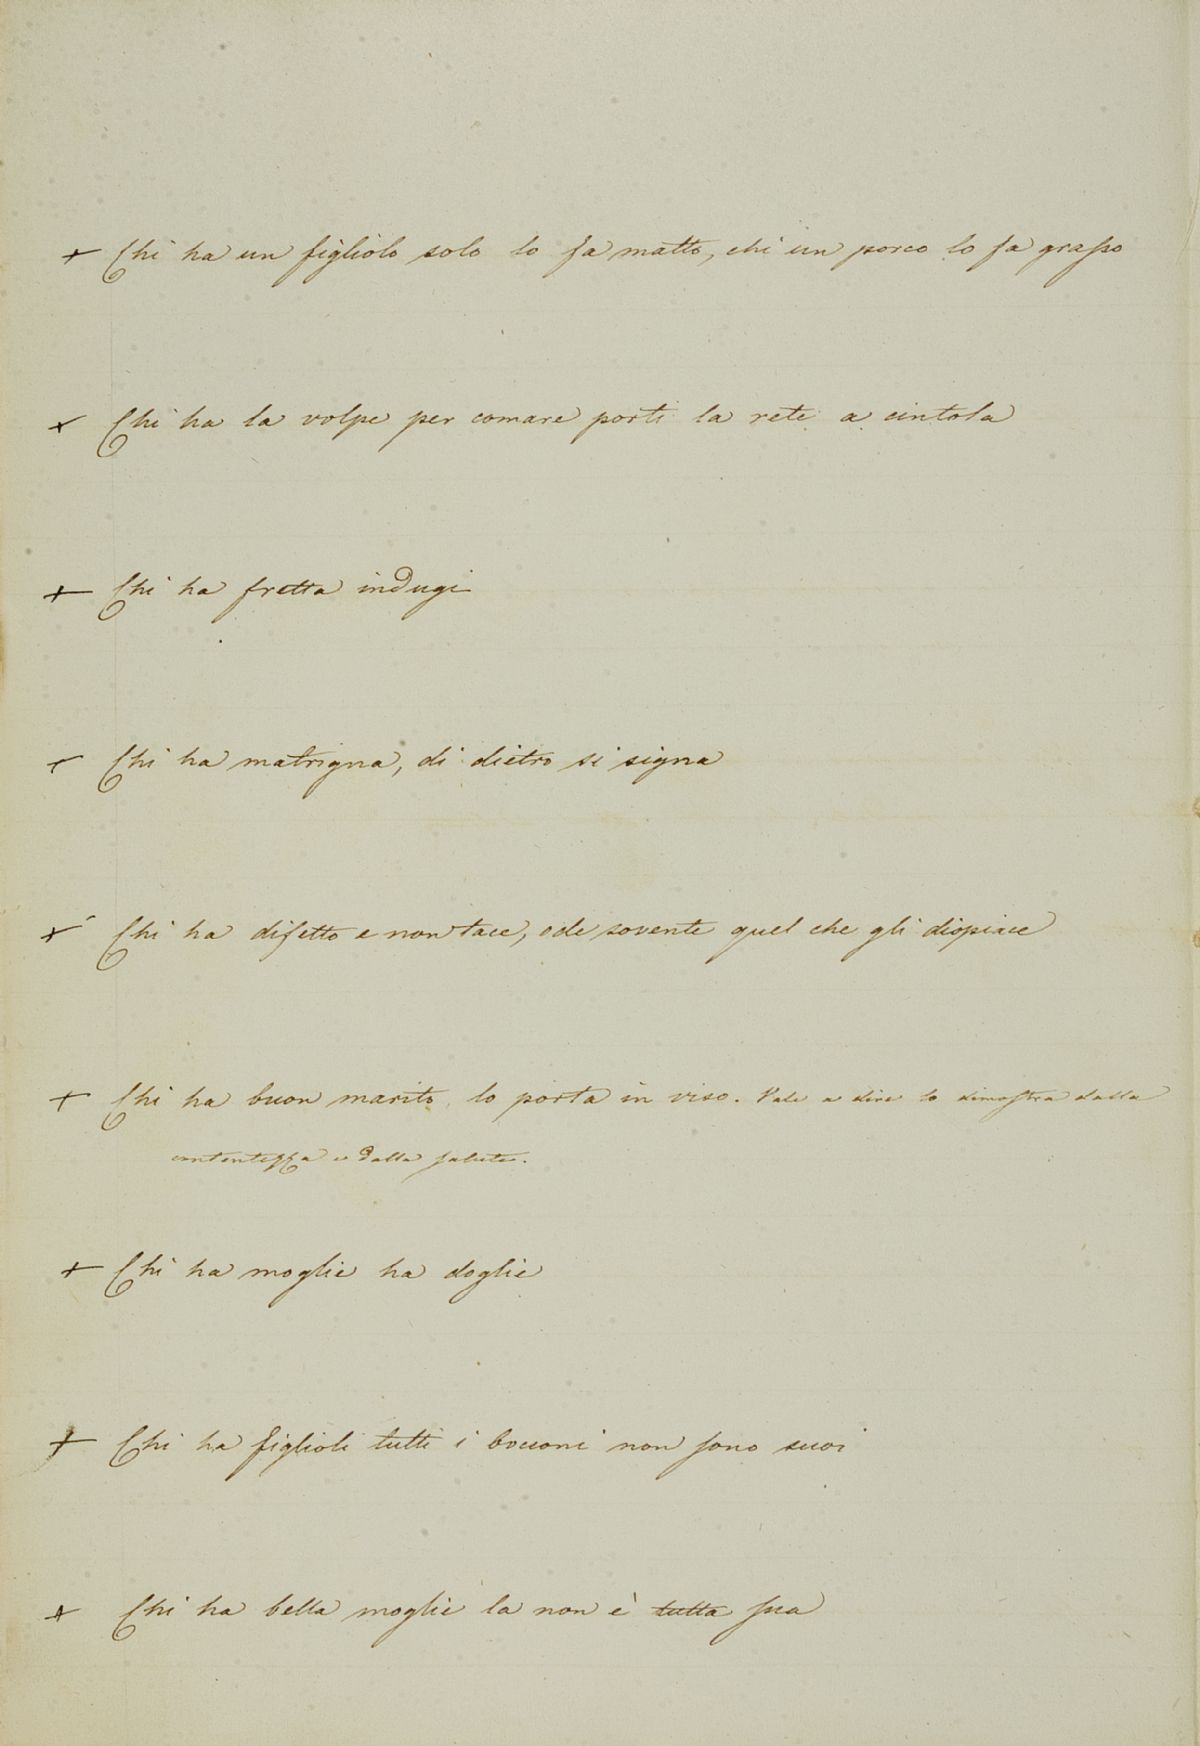 + Chi ha un figliolo solo lo fa matto, chi un porco lo fa grasso
+ Chi ha la volpe per comare porti la rete a cintola
+ Chi ha fretta indugi
+ Chi ha matrigna, di dietro si signa
+ Chi ha difetto e non tace, ode sovente quel che gli dispiace
+ Chi ha buon marito lo porta in viso. Vale a dire lo dimostra dalla
contentezza e dalla salute.
+ Chi ha moglie ha doglie
+ Chi ha figlioli tutti i bocconi non sono suoi
+ Chi ha bella moglie la non è tutta sua